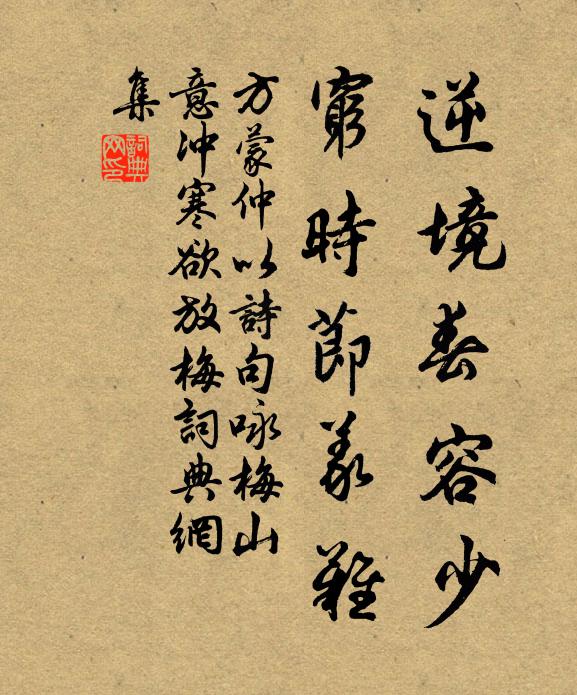 逆境春容少
窮時節義難
方蒙仲以詩句咏梅山
意沖寒欲放梅詞典網
集
詞典
网印